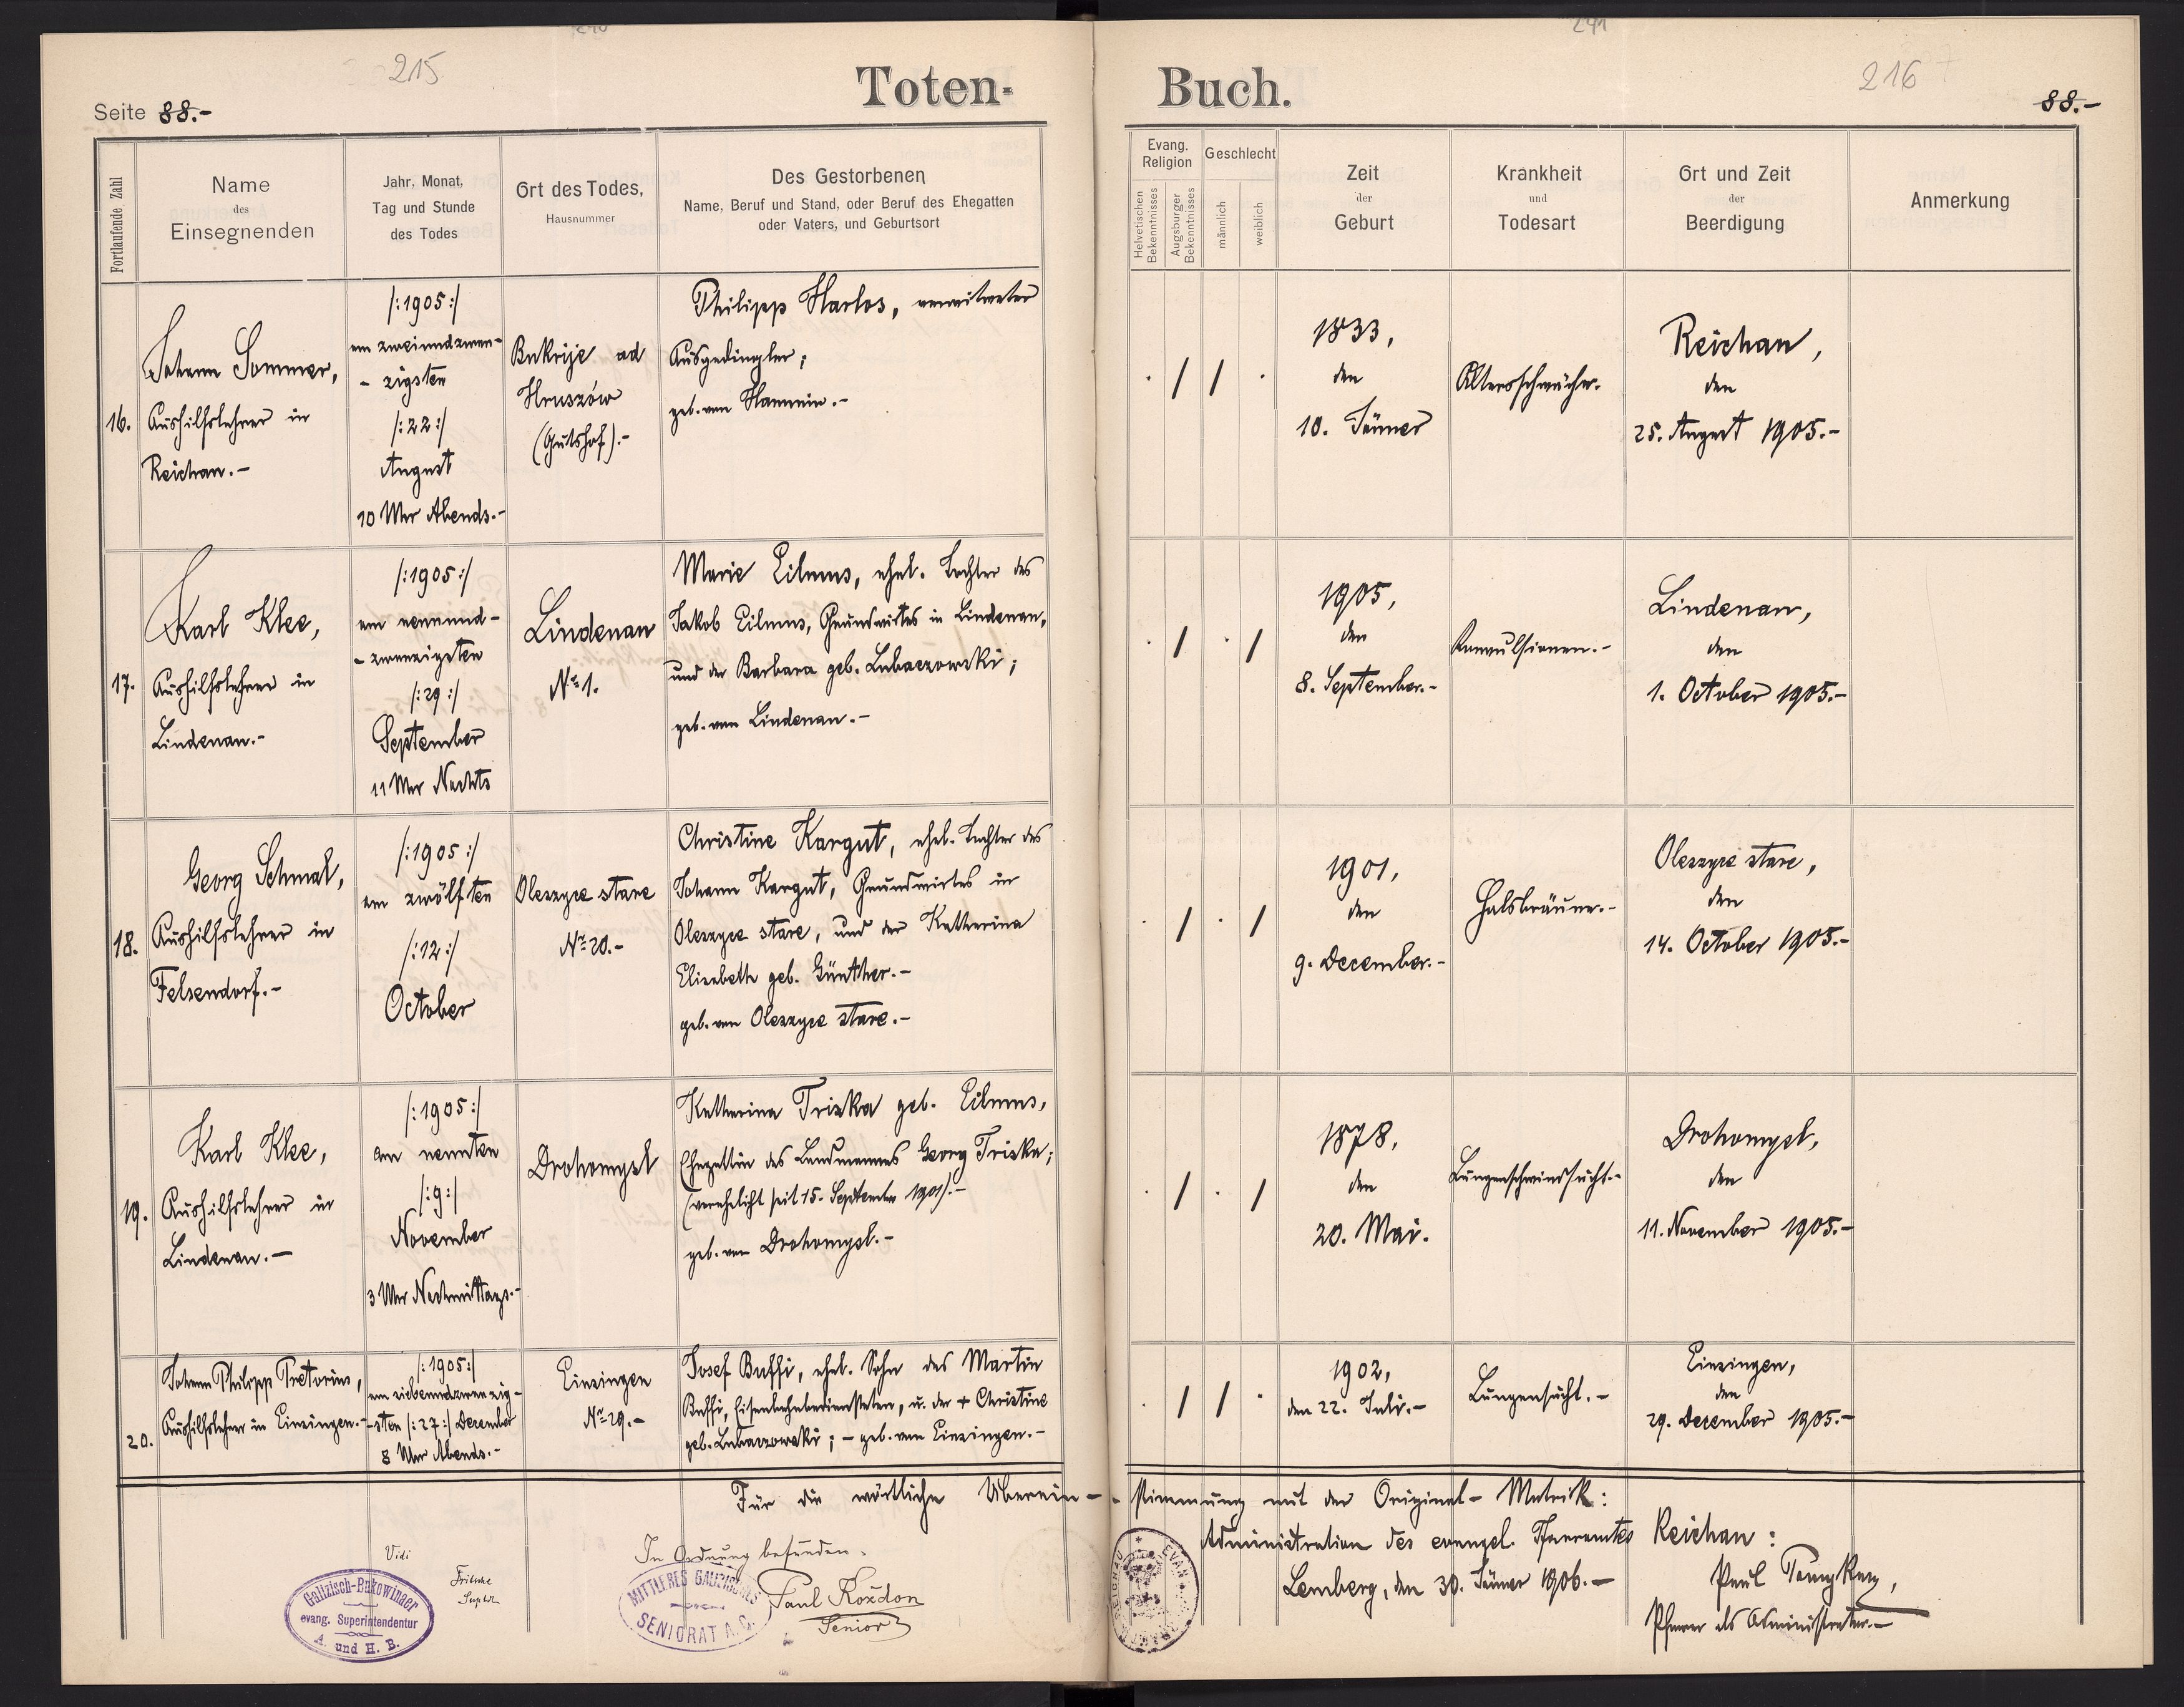 215
216
Toten-
Buch.
Seite 88.-
88.-
Fortlaufende Zahl
Name
des
Einsegnenden
Jahr, Monat,
Tag und Stunde
des Todes
Ort des Todes,
Hausnummer
Des Gestorbenen
Name, Beruf und Stand, oder Beruf des Ehegatten
oder Vaters, und Geburtsort
Evang.
Religion
Helvetischen
Bekenntnisses
Augsburger
Bekenntnisses
Geschlecht
männlich
weiblich
Zeit
der
Geburt
Krankheit
und
Todesart
Ort und Zeit
der
Beerdigung
Anmerkung
16.
Johann Sommer,
Aushilfslehrer in
Reichau.-
/:1905:/
am zweiundzwan-
- zigsten
/:22:/
August
10 Uhr Abends.-
Hruszów
(Gutshof).-
Philipp Harlos, verwitweter
Ausgedingler;
geb. von
. / / .
1833,
den
10. Jänner
Altersschwäche.
Reichau,
den
25. August 1905.-
17.
Karl Klee,
Aushilfslehrer in
Lindenau.-
/:1905:/
am neunund-
- zwanzigsten
/:29:/
September
11 Uhr Nachts
Lindenau
Nº 1.
Marie Eilmus, ehel. Tochter des
Jakob Eilmus, Grundwirtes in Lindenau,
und der Barbara geb. Lubaczowski;
geb. von Lindenau.-
. / . /
1905,
den
8. September.-
Konvulsionen.-
Lindenau,
den
1. October 1905.-
18.
Georg Schmal,
Aushilfslehrer in
Felsendorf.-
/:1905:/
am zwölften
/:12:/
October
Oleszyce stare
Nº 20.-
Christine Kargut, ehel. Tochter des
Johann Kargut, Grundwirtes in
Oleszyce stare, und der Katharina
Elisabeth geb. Günther.-
geb. von Oleszyce stare.-
. / . /
1901,
den
9. December.-
Halsbräune.-
Oleszyce stare,
den
14. October 1905.-
19.
Karl Klee,
Aushilfslehrer in
Lindenau.-
/:1905:/
am neunten
/:9:/
November
3 Uhr Nachmittags.-
Drohomysl
Katharina Triska geb. Eilmus,
Ehegattin des Landmannes Georg Triska;
(verehelicht seit 15. September 1901).-
geb. von Drohomysl.-
. / . /
1878,
den
20. Mai.
Lungenschwindsucht.-
Drohomysl,
den
11. November 1905.-
20.
Johann Philipp Pretorius,
Aushilfslehrer in Einsingen.-
/:1905:/
am siebenundzwanzig-
-sten /:27:/ December
8 Uhr Abends.-
Einsingen
Nº 29.-
Josef Buffi, ehel. Sohn des Martin
Buffi, Eisenbahnbediensteten, u. der + Christine
geb. Lubaczowski; - geb. von Einsingen.-
. / / .
1902,
den 22. Juli.-
Lungensucht.-
Einsingen,
den
29. December 1905.-
Für die wörtliche Überein-
-stimmung mit der Original-Matrik:
Administration des evangel. Pfarramtes Reichau:
Lemberg, den 30. Jänner 1906.-
Paul
Pfarrer als Administrator.-
Vidi
Fritsche
Suptdt
Galizisch-Bukowinaer
evang. Superintendentur
A. und H. B.
In Ordnung befunden.
MITTLERES GALIZISCHES
SENIORAT A. C.
Paul Kozdon
Senior